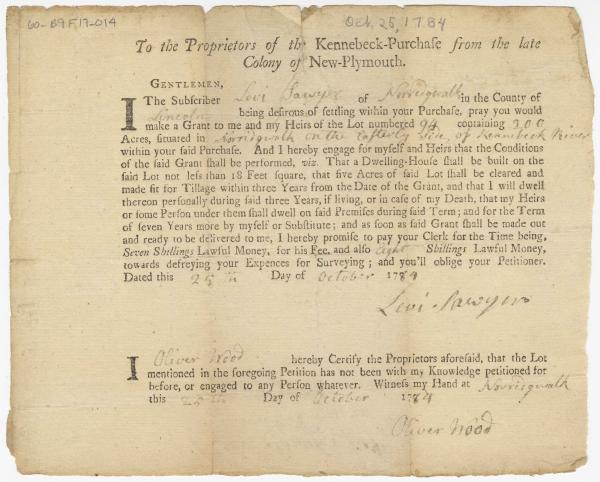 60-B9F17-014
Oct. 25, 1784
To the Proprietors of the Kennebeck-Purchaſe from the late
Colony of New-Plymouth.
GENTLEMEN,
I The Subſcriber Levi Sawyer of Norrigwalk in the County of
Lincoln being deſirous of ſettling within your Purchaſe, pray you would
make a Grant to me and my Heirs of the Lot numbered containing 200
Acres, ſituated in Norrigwalk on the Eaſterly Side of Kennebeck River
within your ſaid Purchaſe. And I hereby engage for myſelf and Heirs that the Conditions
of the ſaid Grant ſhall be performed, viz. That a Dwelling-Houſe ſhall be built on the
ſaid Lot not leſs than 18 Feet ſquare, that five Acres of ſaid Lot ſhall be cleared and
made fit for Tillage within three Years from the Date of the Grant, and that I will dwell
thereon perſonally during ſaid three Years, if living, or in caſe of my Death, that my Heirs
or ſome Perſon under them ſhall dwell on ſaid Premiſes during ſaid Term; and for the Term
of ſeven Years more by myſelf or Subſtitute; and as ſoon as ſaid Grant ſhall be made out
and ready to be delivered to me, I hereby promiſe to pay your Clerk for the Time being,
Seven Shillings Lawful Money, for his Fee, and alſo Eight Shillings Lawful Money,
towards defreying your Expences for Surveying; and you'll oblige your Petitioner.
Dated this 25th Day of October 1784
Levi Sawyer
I Oliver Wood hereby Certify the Proprietors aforeſaid, that the Lot
mentioned in the foregoing Petition has not been with my Knowledge petitioned for
before, or engaged to any Perſon whatever. Witneſs my Hand at Norrigwalk
this 25th Day of October 1784
Oliver Wood